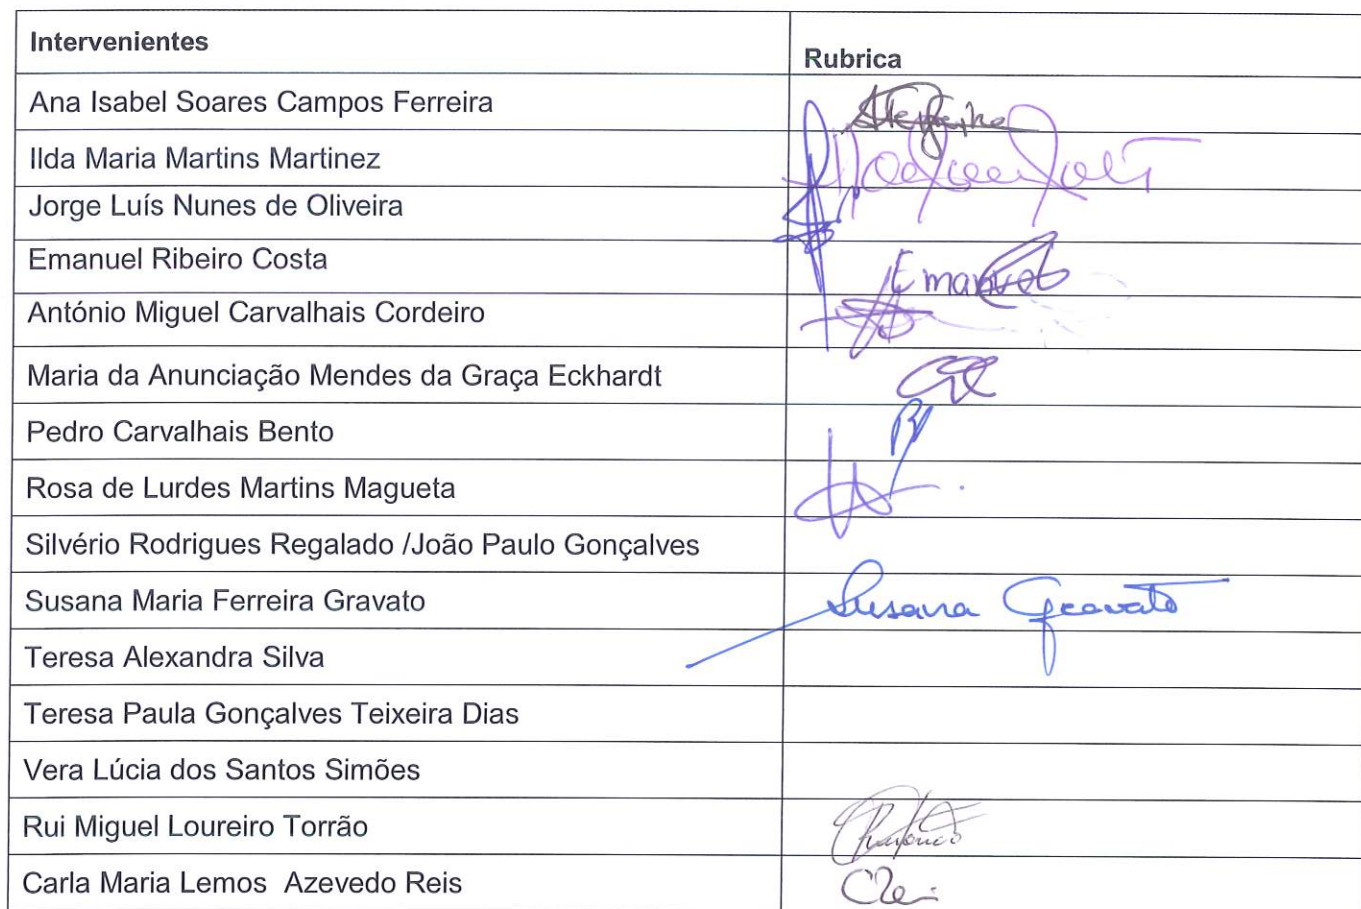 Intervenientes
Rubrica
Ana Isabel Soares Campos Ferreira
Ilda Maria Martins Martinez
Jorge Luís Nunes de Oliveira
Emanuel Ribeiro Costa
Emanuel
António Miguel Carvalhais Cordeiro
Maria da Anunciação Mendes da Graça Eckhardt
Pedro Carvalhais Bento
Rosa de Lurdes Martins Magueta
Silvério Rodrigues Regalado /João Paulo Gonçalves
Susana Maria Ferreira Gravato
Susana Gravato
Teresa Alexandra Silva
Teresa Paula Gonçalves Teixeira Dias
Vera Lúcia dos Santos Simões
Rui Miguel Loureiro Torrão
Carla Maria Lemos Azevedo Reis